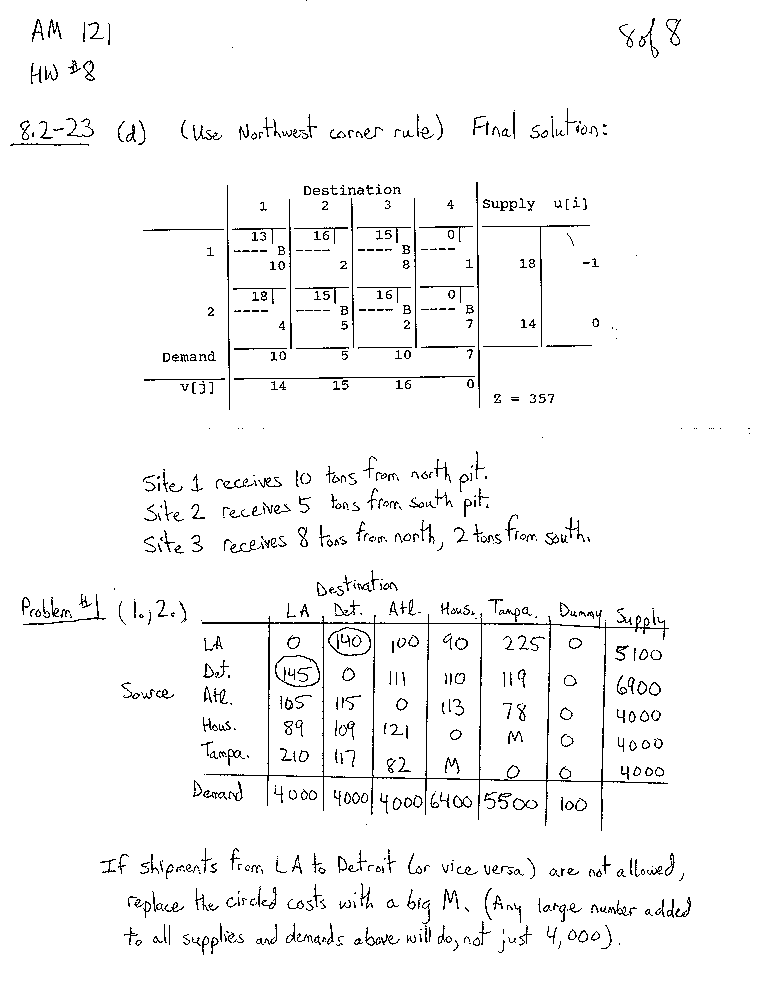 AM 121
8 of 8
HW #8
8.2-23 (d) (Use Northwest corner rule) Final solution:
Destination
1 2 3 4 Supply u[i]
13 16 15 0
1 ---- B ---- ---- B ----
10 2 8 1 18 -1
18 15 16 0
2 ---- ---- B ---- B ---- B
4 5 2 7 14 0
Demand 10 5 10 7
v[j] 14 15 16 0
Z = 357
Site 1 receives 10 tons from north pit.
Site 2 receives 5 tons from south pit.
Site 3 receives 8 tons from north, 2 tons from south.
Destination
Problem #1 (1.,2.) LA Det. Atl. Hous. Tampa. Dummy Supply
LA 0 140 100 90 225 0 5100
Det. 145 0 111 110 119 0 6900
Source Atl. 105 115 0 113 78 0 4000
Hous. 89 109 121 0 M 0 4000
Tampa. 210 117 82 M 0 0 4000
Demand 4000 4000 4000 6400 5500 100
If shipments from LA to Detroit (or vice versa) are not allowed,
replace the circled costs with a big M. (Any large number added
to all supplies and demands above will do, not just 4,000).